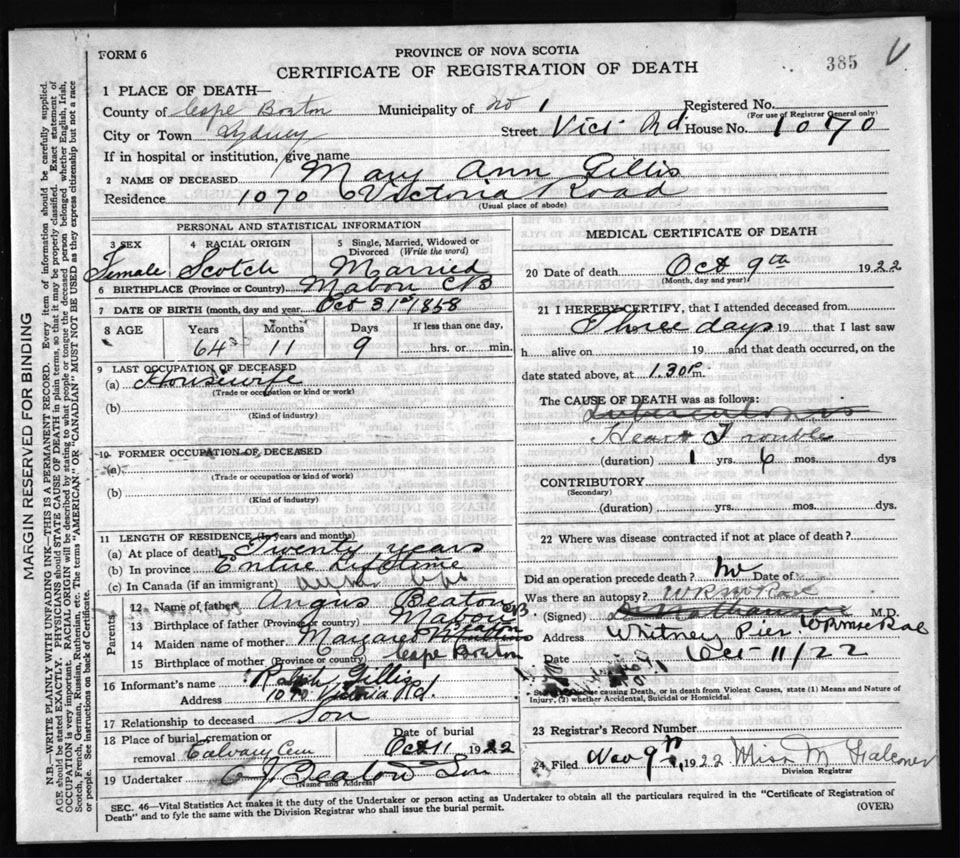 FORM 6
PROVINCE OF NOVA SCOTIA
CERTIFICATE OF REGISTRATION OF DEATH
385
1 PLACE OF DEATH—
County of Cape Breton Municipality of No 1 Registered No.
(For use of Registrar General only)
City or Town Sydney Street Vict Rd. House No. 1070
If in hospital or institution, give name
2 NAME OF DECEASED Mary Ann Gillis
Residence 1070 Victoria Road
(Usual place of abode)
PERSONAL AND STATISTICAL INFORMATION
3 SEX 4 RACIAL ORIGIN 5 Single, Married, Widowed or Divorced (Write the word)
Female Scotch Married
6 BIRTHPLACE (Province or Country) Mabou CB
7 DATE OF BIRTH (month, day and year) Oct 31st 1858
8 AGE Years Months Days If less than one day,
64 11 9 hrs. or min.
9 LAST OCCUPATION OF DECEASED
(a) Housewife
(Trade or occupation or kind or work)
(b)
(Kind of industry)
10 FORMER OCCUPATION OF DECEASED
(a)
(Trade or occupation or kind of work)
(b)
(Kind of industry)
11 LENGTH OF RESIDENCE (In years and months)
(a) At place of death Twenty years
(b) In province Entire Lifetime
(c) In Canada (if an immigrant)
Parents
12 Name of father Angus Beaton
13 Birthplace of father (Province or country) Mabou CB
14 Maiden name of mother Margaret Beaton
15 Birthplace of mother (Province or country) Cape Breton
16 Informant's name Ralph Gillis
Address 1070 Victoria Rd.
17 Relationship to deceased Son
18 Place of burial, cremation or removal Calvary Cem Date of burial Oct 11 1922
19 Undertaker J Beaton Son
(Name and Address)
MEDICAL CERTIFICATE OF DEATH
20 Date of death Oct 9th 1922
(Month, day and year)
21 I HEREBY CERTIFY, that I attended deceased from
Three days 19 that I last saw
h alive on 19 and that death occurred, on the
date stated above, at 1.30 P. m.
The CAUSE OF DEATH was as follows:
Tuberculosis
Heart Trouble
(duration) 1 yrs. 6 mos. dys
CONTRIBUTORY
(Secondary)
(duration) yrs. mos. dys.
22 Where was disease contracted if not at place of death?
Did an operation precede death? No Date of
Was there an autopsy?
(Signed) M.D.
Address Whitney Pier.
Date Oct 11/22
State the Disease causing Death, or in death from Violent Causes, state (1) Means and Nature of Injury, (2) whether Accidental, Suicidal or Homicidal.
23 Registrar's Record Number
24 Filed Nov 9th, 1922 Miss M Falconer
Division Registrar
SEC. 46—Vital Statistics Act makes it the duty of the Undertaker or person acting as Undertaker to obtain all the particulars required in the "Certificate of Registration of
Death" and to fyle the same with the Division Registrar who shall issue the burial permit. (OVER)
MARGIN RESERVED FOR BINDING
N.B.—WRITE PLAINLY WITH UNFADING INK—THIS IS A PERMANENT RECORD. Every item of information should be carefully supplied.
AGE should be stated EXACTLY. PHYSICIANS should STATE CAUSE OF DEATH in plain terms, so that it may be properly classified. Exact statement of
OCCUPATION is very important. RACIAL ORIGIN will be described by stating to what people or tongue the deceased person belonged whether English, Irish,
Scotch, French, German, Russian, Ruthenian, etc. The terms "AMERICAN" OR "CANADIAN" MUST NOT BE USED as they express citizenship but not a race
or people. See instructions on back of Certificate.